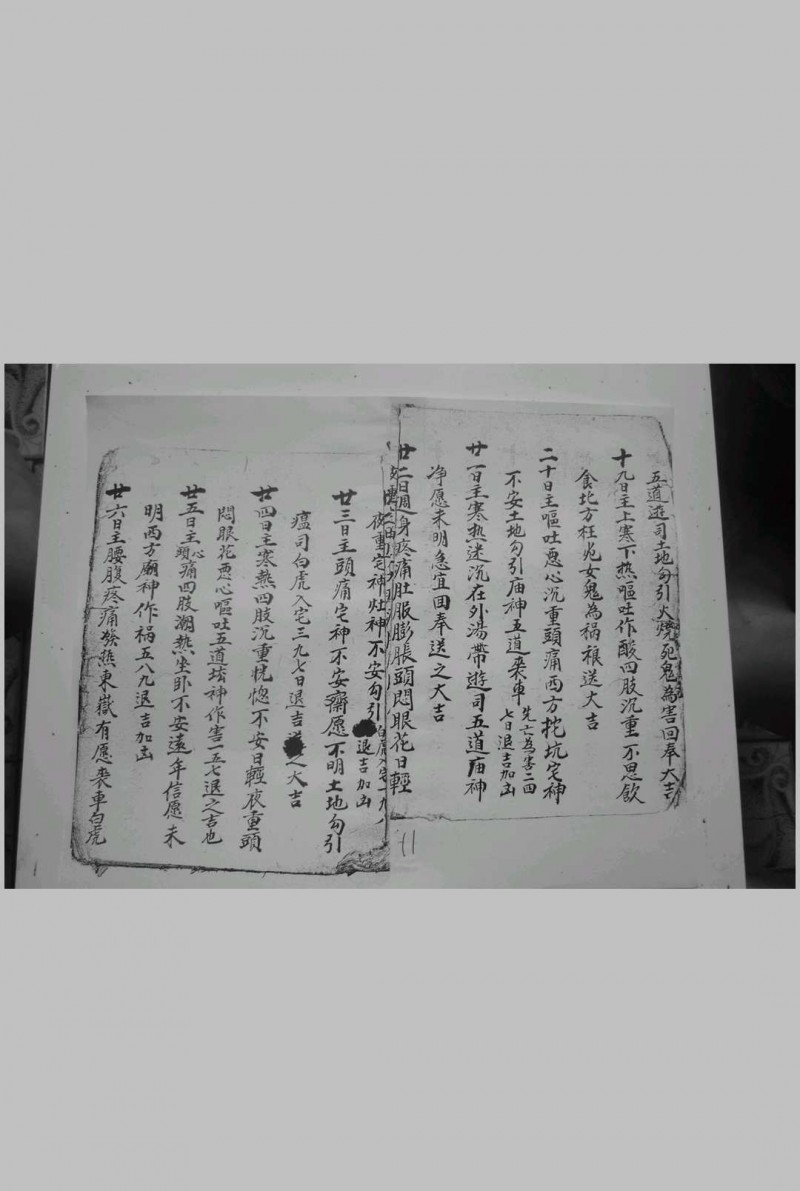 五道遊司土地勾引火燒死鬼為害回奉大吉
十九日主上寒下热嘔吐作酸四肢沉重不思飲
食北方枉死女鬼為祸禳送大吉
二十日主嘔吐惡心沉重頭痛西方挖坑宅神
不安土地勾引庙神五道丧車先亡為害二四
七日退吉加凶
廿一日主寒热迷沉在外湯帶遊司五道庙神
净愿未明急宜回奉送之大吉
廿二日週身疼痛肚服膨脹頭悶眼花日輕
夜重宅神灶神不安勾引白虎入宅一九
退吉加凶
廿三日主頭痛宅神不安齋愿不明土地勾引
瘟司白虎入宅三九七日退吉之大吉
廿四日主寒熱四肢沉重恍惚不安日輕夜重頭
悶眼花惡心嘔吐五道坛神作害一五七退之吉也
廿五日主心頭痛四肢潮热坐卧不安遠年信愿未
明西方廟神作祸五八九退吉加凶
廿六日主腰腹疼痛發热東嶽有愿丧車白虎
11